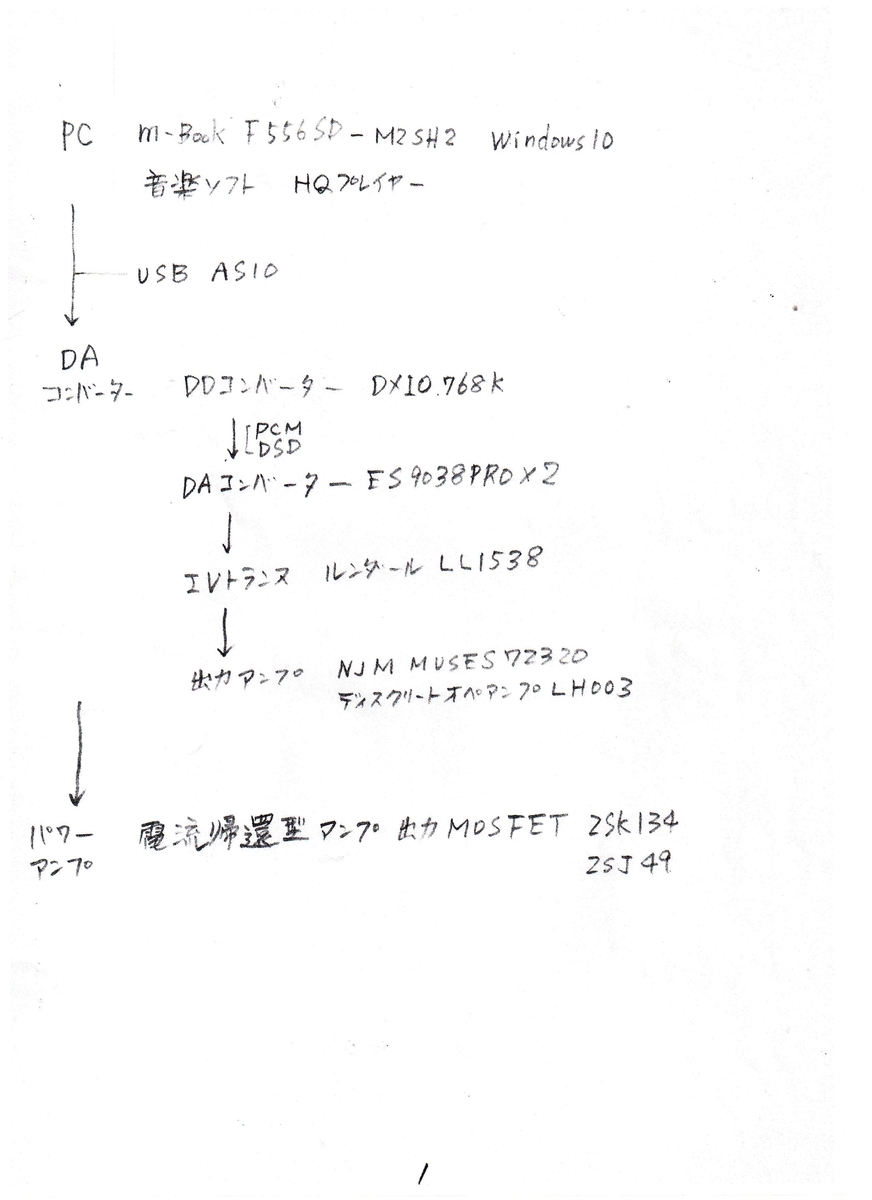 PC m-Book F556SD-M2SH2 Windows10
音楽ソフト HQプレイヤー
USB ASIO
DA
コンバーター DDコンバーター DXIO.768K
PCM
DSD
DAコンバーター ES9038PRO×2
IVトランス ルンダール LL1538
出力アンプ NJM MUSES72320
ディスクリートオペアンプLH003
パワー
アンプ 電流帰還型アンプ 出力MOSFET 2SK134
2SJ49
1